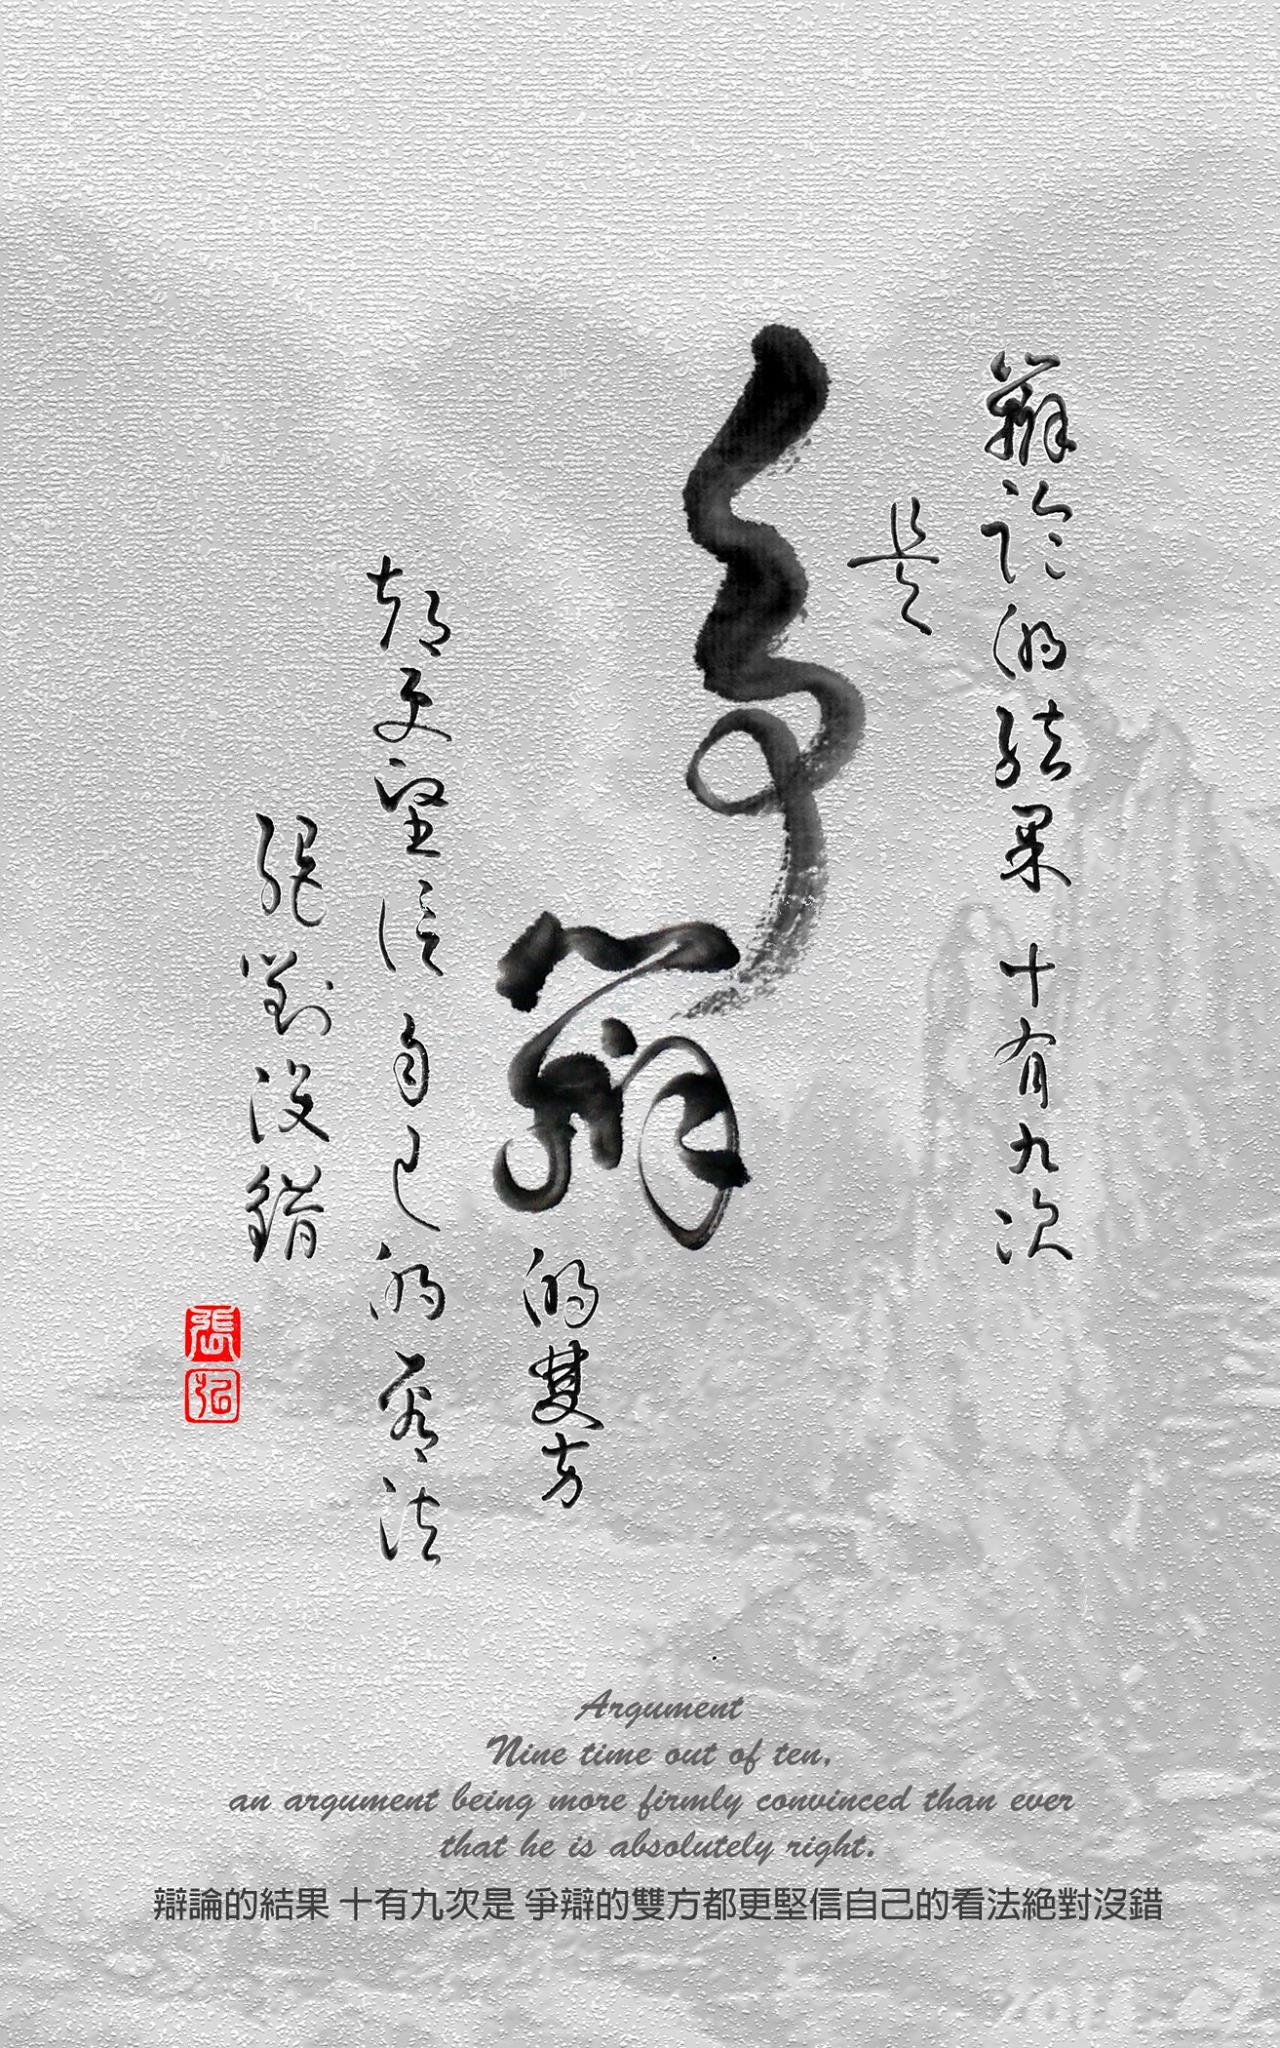 辯論的結果 十有九次
是
爭辯的雙方
都更堅信自己的看法
絕對沒錯
張
Argument
Nine time out of ten,
an argument being more firmly convinced than ever
that he is absolutely right.
辯論的結果 十有九次是 爭辯的雙方都更堅信自己的看法絕對沒錯